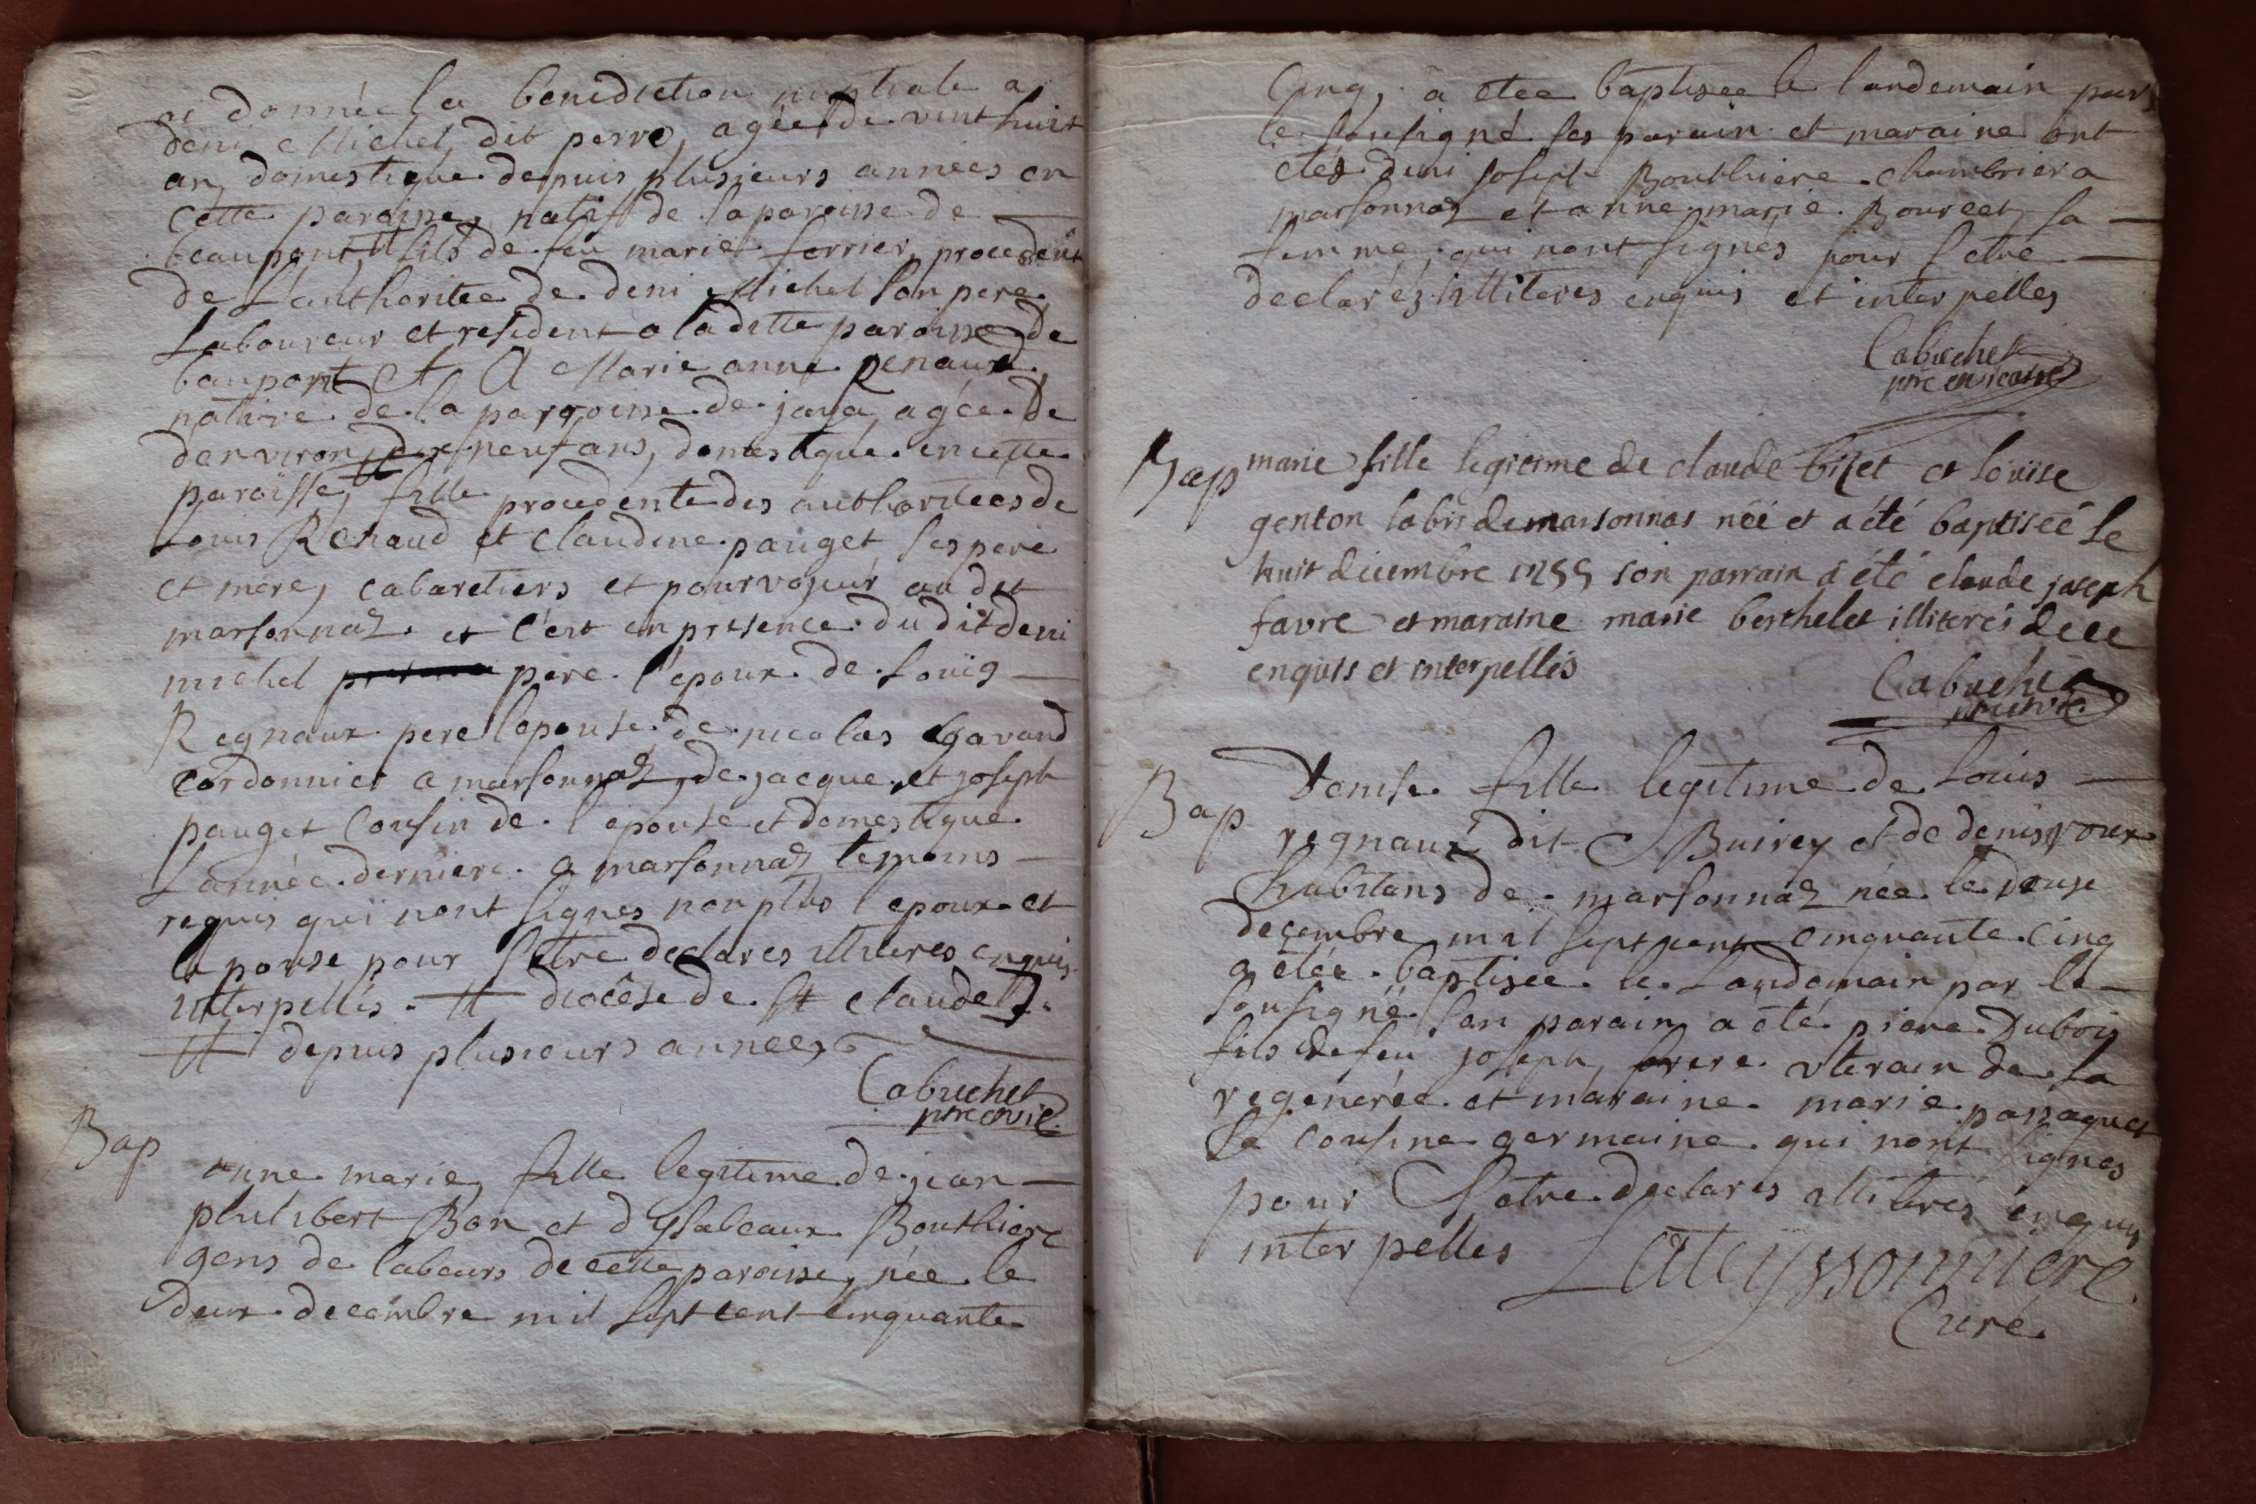 ai donnée la benediction nuptiale a
deni Michel, dit perre, agée de vint huit
an, domestique depuis plusieurs années en
cette paroisse, natif de la paroisse de
beaupont, # fils de feu marie ferrier, procedent
de Lauthoritee de deni Michel son pere
Laboureur et resident a la ditte paroisse de
baupont et A Marie anne renaud
native de la parroisse de jaya agée de
denviron dix neuf ans, domestique en cette
paroisse, # fille procedente des authoritees de
Louis Renaud et claudine pauget ses pere
et mere, cabaretiers et pourvojeur au dit
marsonnaz. et c'est en presence du dit deni
michel pere l'epoux de Louïs
Regnaux pere lepouse de nicolas gavand
cordonnier a marsonnaz, de jacque et joseph
pauget cousin de l'epouse et domestique
L'année derniere a marsonnaz temoins
requis quï nont signes non plus l'epoux et
lepouse pour s'etre declares illiteres enquis
interpellés. # diocêse de st claude
# depuis plusieurs années
Cabuchet
ptre vic
Bap
anne marie, fille legitime de jean
philibert Bon et d'ysabeaux Bouthiere
gens de labeurs de cette paroisse, née le
deux decembre mil sept cent cinquante
Cinq, a etee baptisee le landemain par
le sousigné ses parain et maraine ont
etés deni joseph Bouthiere chambrier a
marsonnaz et anne marie Bourcet sa
femme, qui nont signés pour s'etre
declarés illiteres enquis et interpelles
Cabuchet
ptre vicaire
Bap marie fille legitime de claude bizet et loüise
genton labrs de marsonnas néé et a été baptiséé le
huit décembre 1755 son parrain a été claude joseph
favre et maraine marie berthelet illiterés de ce
enquis et interpellés
Cabuchet
ptre vic
Bap Denise fille legitime de Louis
regnaux dit Buirey et de denise roux
habitans de marsonnaz née le douse
decembre mil sept cents cinquante cinq
a étée baptisee le landemain par le
sousigné son parain a été piere Dubois
fils de feu joseph, frere uterain de la
regénérée et maraine marie passaquet
sa cousine germaine qui nont signes
pour s'etre declarés illitérés enquis
interpelles
Lateyssonniere
Curé